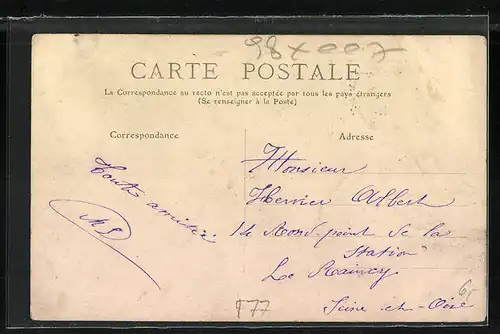 98X007
CARTE POSTALE
La Correspondance au recto n'est pas acceptée par tous les pays étrangers
(Se renseigner à la Poste)
Correspondance
Adresse
Toute amitié
MS
Monsieur
Hervier Albert
14 Rond-point de la
Station
Le Raincy
Seine-et-Oise
6,-
177